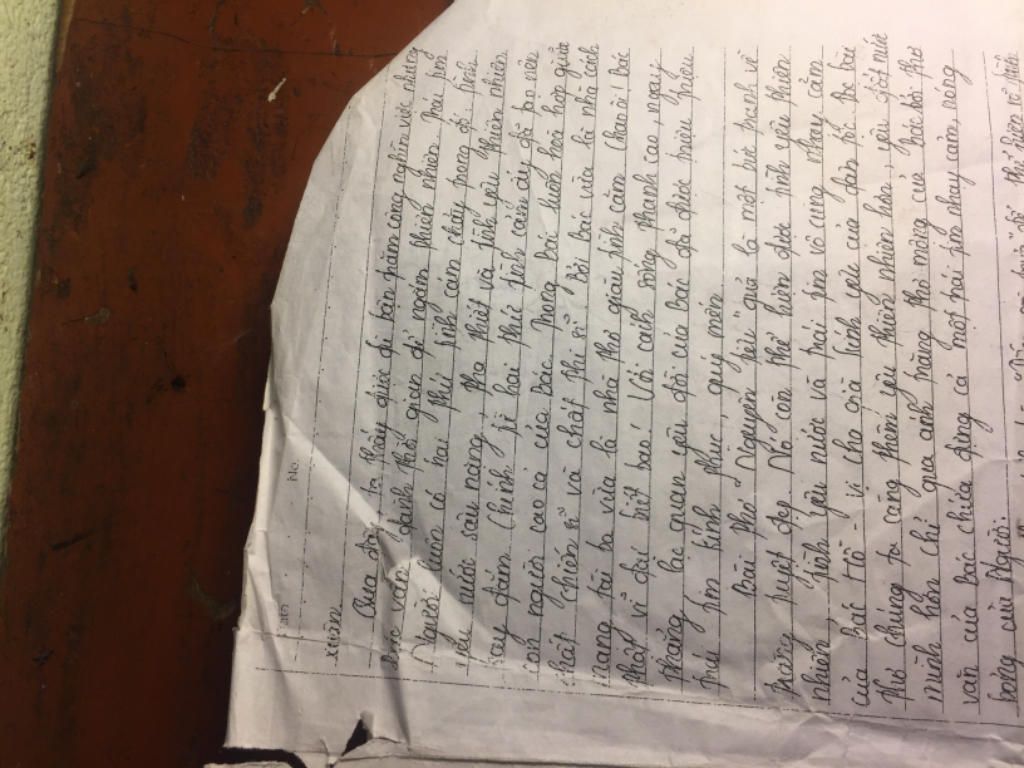 No.
xuân.
Qua đó ta thấy giữa đi bàn trăm công nghìn việc nhưng
Bác vẫn dành thời gian để ngắm thiên nhiên. Trong
Người luôn có hai thứ tình cảm cháy trong đó tình
yêu nước sâu nặng, tha thiết và tình yêu thiên nhiên
say đắm. Chính vì hai thứ tình cảm ấy đã tạo nên
con người cao cả của bác. Trong bác luôn hài hòa giữa
chất chiến sĩ và chất thi sĩ bởi bác vừa là nhà cách
mạng tài ba vừa là nhà thơ giàu tình cảm. Chao ôi! Bác
thật vĩ đại biết bao! Với cách sống thanh cao, ngay
thẳng, lạc quan yêu đời của bác đã được triệu triệu
trái tim kính phục, quý mến.
Bài thơ "Nguyên tiêu" quả là một bức tranh về
trăng tuyệt đẹp. Nó còn thể hiện được tình yêu thiên
nhiên, tình yêu nước và trái tim vô cùng nhạy cảm
của bác Hồ - vị cha già kính yêu của dân tộc. Đọc bài
thơ chúng ta càng thêm yêu thiên nhiên hơn, yêu đất nước
mình hơn. Chỉ qua ánh trăng thơ mộng của bài thơ
văn của bác chứa đựng cả một trái tim nhạy cảm, nóng
bỏng của Người.